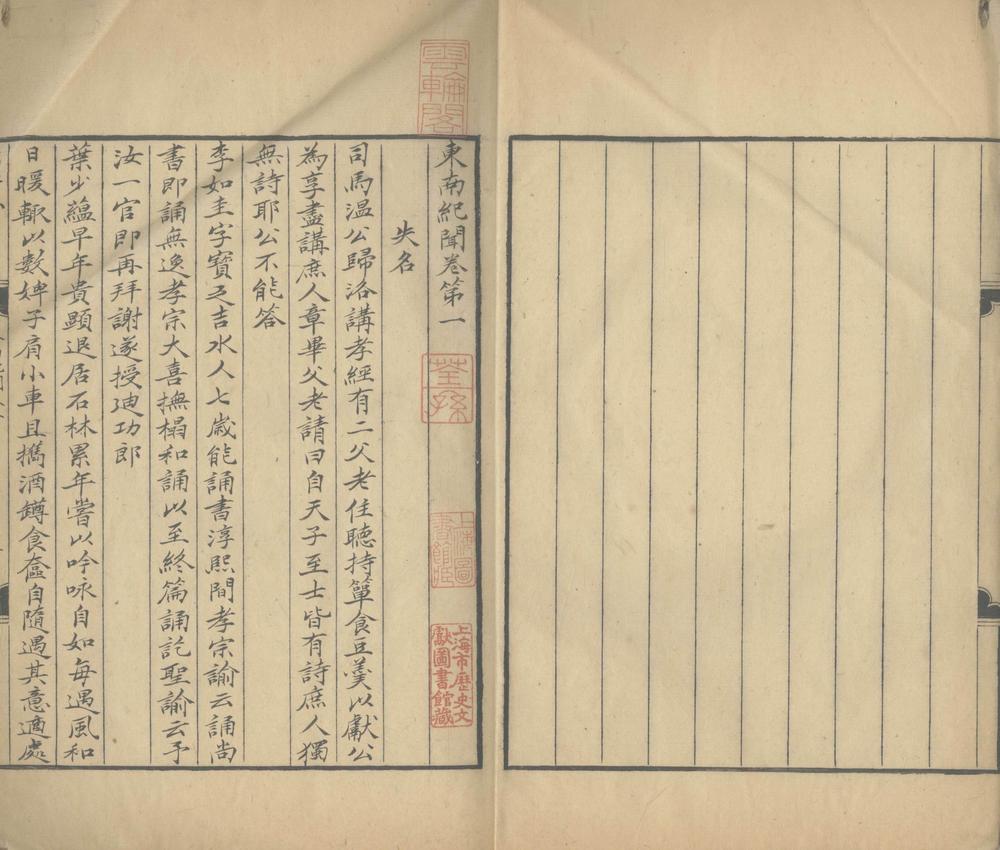 東南紀聞卷第一
失名
司馬温公歸洛講孝經有二父老住聽持簞食豆羹以獻公
為享盡講庶人章畢父老請曰自天子至士皆有詩庶人獨
無詩耶公不能答
李如圭字寶之吉水人七歲能誦書淳熙間孝宗諭云誦尚
書即誦無逸孝宗大喜撫榻和誦以至終篇誦訖聖諭云予
汝一官即再拜謝遂授迪功郎
葉少蘊早年貴顯退居石林累年嘗以吟咏自如每遇風和
日暖輒以數婢子肩小車且攜酒罇食奩自隨遇其意適處
雲輪閣
荃孫
上海圖書館藏
上海市歷史文獻圖書館藏